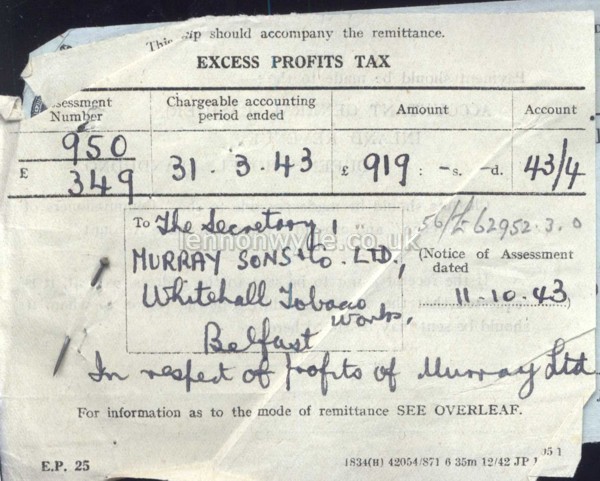 This slip should accompany the remittance.
EXCESS PROFITS TAX
Assessment Number
Chargeable accounting period ended
Amount
Account
950
£ 349
31. 3. 43
£ 919 : -s. -d.
43/4
To The Secretary,
MURRAY SONS & Co. LTD.,
Whitehall Tobacco
Works,
Belfast
lennonwylie.co.uk
62952.3.0
(Notice of Assessment
dated
11-10-43)
In respect of profits of Murray Ltd
For information as to the mode of remittance SEE OVERLEAF.
E.P. 25
1834(H) 42054/871 6 35m 12/42 JP